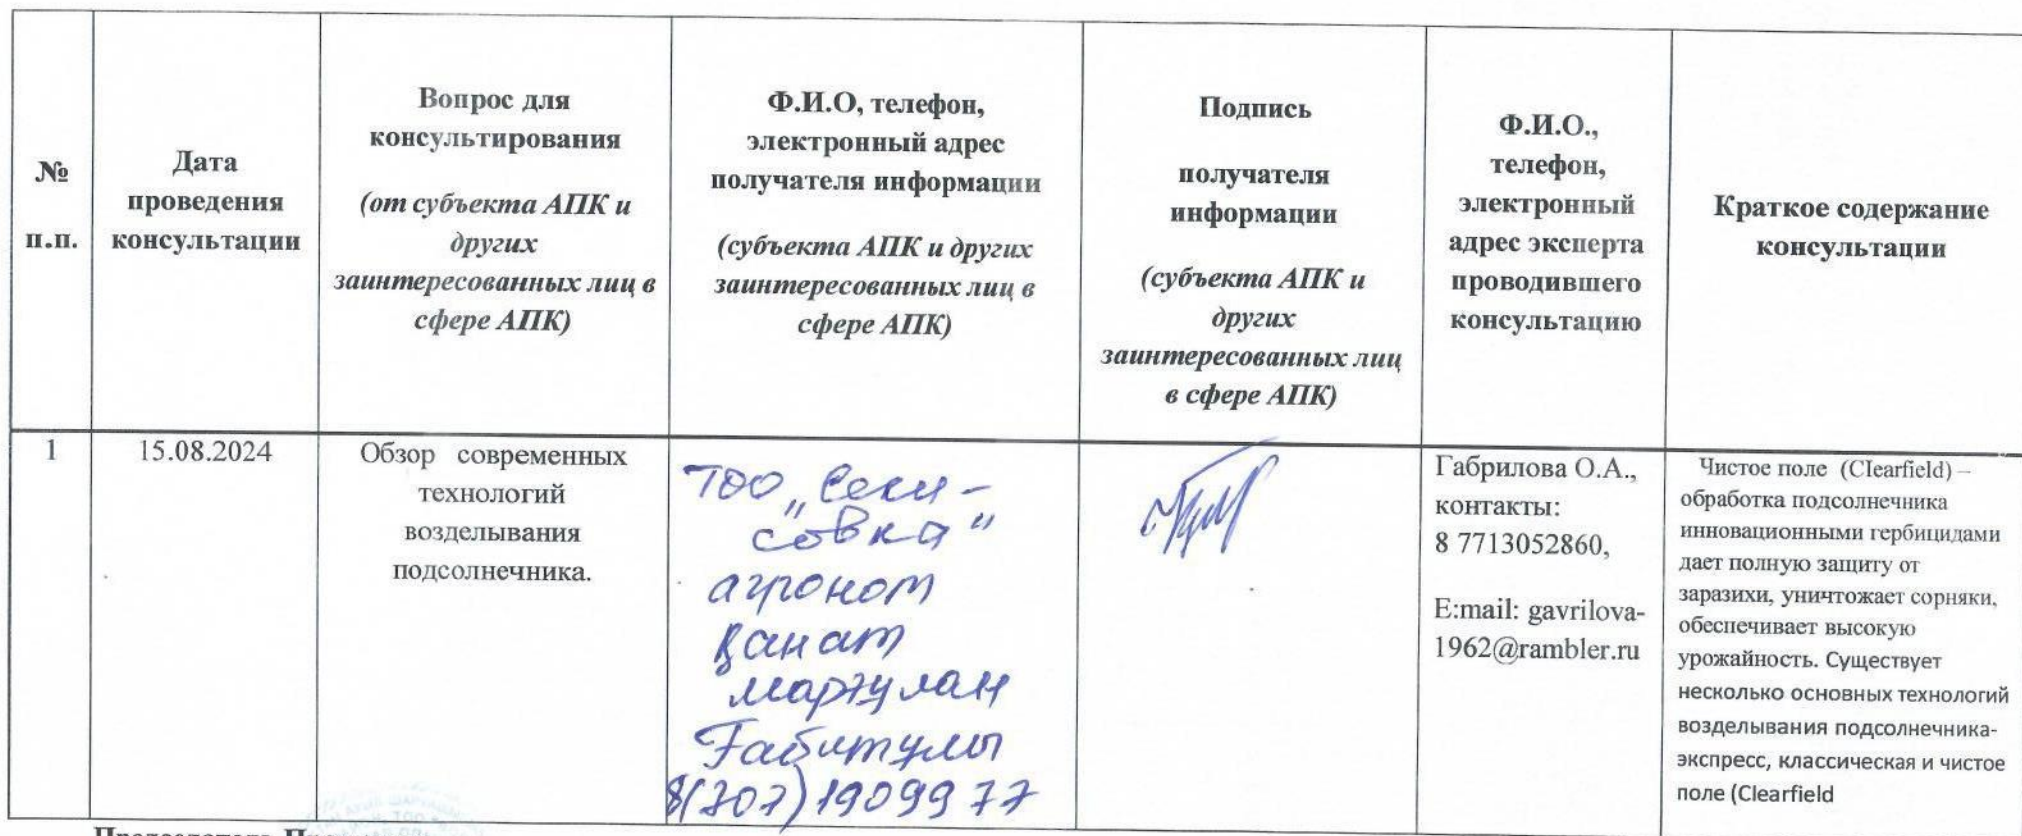 №
п.п.
Дата
проведения
консультации
Вопрос для
консультирования
(от субъекта АПК и
других
заинтересованных лиц в
сфере АПК)
Ф.И.О, телефон,
электронный адрес
получателя информации
(субъекта АПК и других
заинтересованных лиц в
сфере АПК)
Подпись
получателя
информации
(субъекта АПК и
других
заинтересованных лиц
в сфере АПК)
Ф.И.О.,
телефон,
электронный
адрес эксперта
проводившего
консультацию
Краткое содержание
консультации
1
15.08.2024
Обзор современных
технологий
возделывания
подсолнечника.
ТОО „Секи-
совка"
агроном
Қанат
Марғулан
Ғабитұлы
8(707)1909977
Габрилова О.А.,
контакты:
8 7713052860,
E:mail: gavrilova-
1962@rambler.ru
Чистое поле (Clearfield) –
обработка подсолнечника
инновационными гербицидами
дает полную защиту от
заразихи, уничтожает сорняки,
обеспечивает высокую
урожайность. Существует
несколько основных технологий
возделывания подсолнечника-
экспресс, классическая и чистое
поле (Clearfield